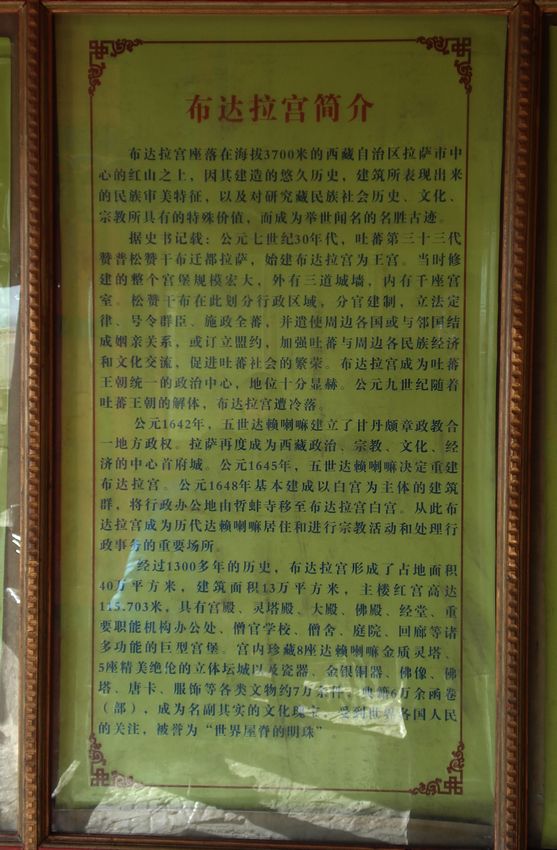 布达拉宫简介
布达拉宫座落在海拔3700米的西藏自治区拉萨市中
心的红山之上，因其建造的悠久历史，建筑所表现出来
的民族审美特征，以及对研究藏民族社会历史、文化、
宗教所具有的特殊价值，而成为举世闻名的名胜古迹。
据史书记载：公元七世纪30年代，吐蕃第三十三代
赞普松赞干布迁都拉萨，始建布达拉宫为王宫。当时修
建的整个宫堡规模宏大，外有三道城墙，内有千座宫
室。松赞干布在此划分行政区域，分官建制，立法定
律、号令群臣、施政全蕃，并遣使周边各国或与邻国结
成姻亲关系，或订立盟约，加强吐蕃与周边各民族经济
和文化交流，促进吐蕃社会的繁荣。布达拉宫成为吐蕃
王朝统一的政治中心，地位十分显赫。公元九世纪随着
吐蕃王朝的解体，布达拉宫遭冷落。
公元1642年，五世达赖喇嘛建立了甘丹颇章政教合
一地方政权。拉萨再度成为西藏政治、宗教、文化、经
济的中心首府城。公元1645年，五世达赖喇嘛决定重建
布达拉宫。公元1648年基本建成以白宫为主体的建筑
群，将行政办公地由哲蚌寺移至布达拉宫白宫。从此布
达拉宫成为历代达赖喇嘛居住和进行宗教活动和处理行
政事务的重要场所。
经过1300多年的历史，布达拉宫形成了占地面积
40万平方米，建筑面积13万平方米，主楼红宫高达
115.703米，具有宫殿、灵塔殿、大殿、佛殿、经堂、重
要职能机构办公处、僧官学校、僧舍、庭院、回廊等诸
多功能的巨型宫堡。宫内珍藏8座达赖喇嘛金质灵塔、
5座精美绝伦的立体坛城以及瓷器、金银铜器、佛像、佛
塔、唐卡、服饰等各类文物约7万余件，典籍6万余函卷
（部），成为名副其实的文化瑰宝，受到世界各国人民
的关注，被誉为“世界屋脊的明珠”